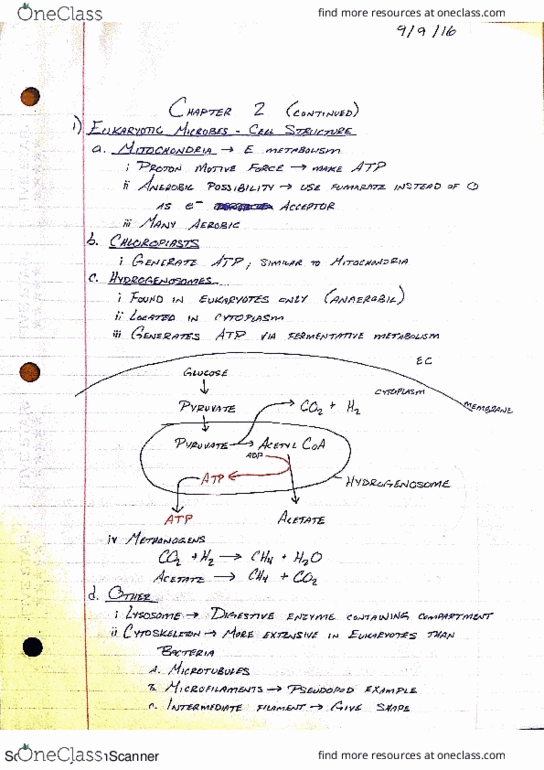 OneClass
find more resources at oneclass.com
9/9/16
CHAPTER 2 (CONTINUED)
i) EUKARYOTIC MICROBES - CELL STRUCTURE
a. MITOCHONDRIA → E METABOLISM
i PROTON MOTIVE FORCE → MAKE ATP
ii ANEROBIC POSSIBILITY → USE FUMARATE INSTEAD OF O
AS e⁻ ACCEPTOR
iii MANY AEROBIC
b. CHLOROPLASTS
i GENERATE ATP, SIMILAR TO MITOCHONDRIA
c. HYDROGENOSOMES
i FOUND IN EUKARYOTES ONLY (ANAEROBIC)
ii LOCATED IN CYTOPLASM
iii GENERATES ATP VIA FERMENTATIVE METABOLISM
EC
GLUCOSE
CYTOPLASM
MEMBRANE
PYRUVATE
CO₂ + H₂
PYRUVATE → ACETYL CoA
ADP
ATP
HYDROGENOSOME
ATP
ACETATE
iv METHANOGENS
CO₂ + H₂ → CH₄ + H₂O
ACETATE → CH₄ + CO₂
d. OTHER
i LYSOSOME → DIGESTIVE ENZYME CONTAINING COMPARTMENT
ii CYTOSKELETON → MORE EXTENSIVE IN EUKARYOTES THAN
BACTERIA
A. MICROTUBULES
B. MICROFILAMENTS → PSEUDOPOD EXAMPLE
C. INTERMEDIATE FILAMENT → GIVE SHAPE
OneClass
Scanner
find more resources at oneclass.com